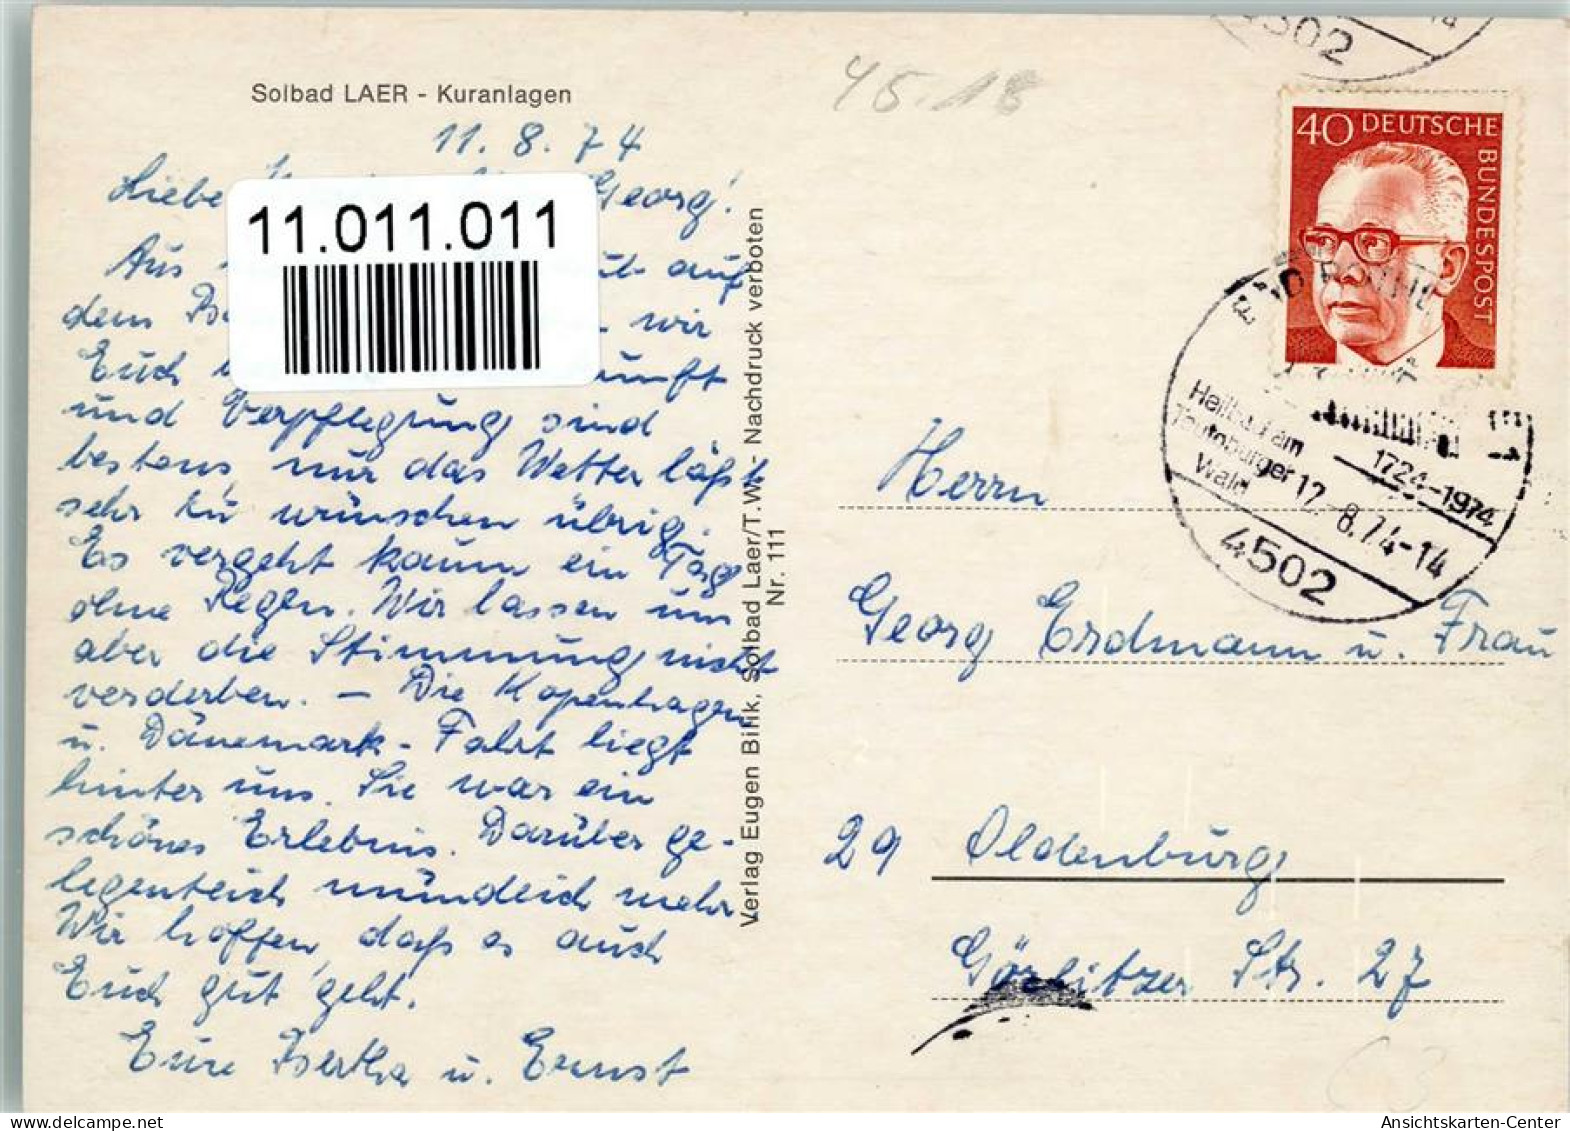 Solbad LAER - Kuranlagen
11. 8. 74
Liebe Georg!
11.011.011
Aus auf
dem wir
Euch
und Verpflegung sind
bestens, nur das Wetter läßt
sehr zu wünschen übrig.
Es vergeht kaum ein Tag
ohne Regen. Wir lassen uns
aber die Stimmung nicht
verderben. — Die Kopenhagen
u. Dänemark-Fahrt liegt
hinter uns. Sie war ein
schönes Erlebnis. Darüber ge-
legentlich mündlich mehr.
Wir hoffen, daß es auch
Euch gut geht.
Eure Bertha u. Ernst
Verlag Eugen Bifik, Solbad Laer/T.W. - Nachdruck verboten
Nr. 111
45.18
4502
14
40 DEUTSCHE
BUNDESPOST
BAD ROTHENFELDE
Heilbad am
Teutoburger
Wald
1724-1974
12.-8.74-14
4502
Herrn
Georg Erdmann u. Frau
29 Oldenburg
Görlitzer Str. 27
Ansichtskarten-Center